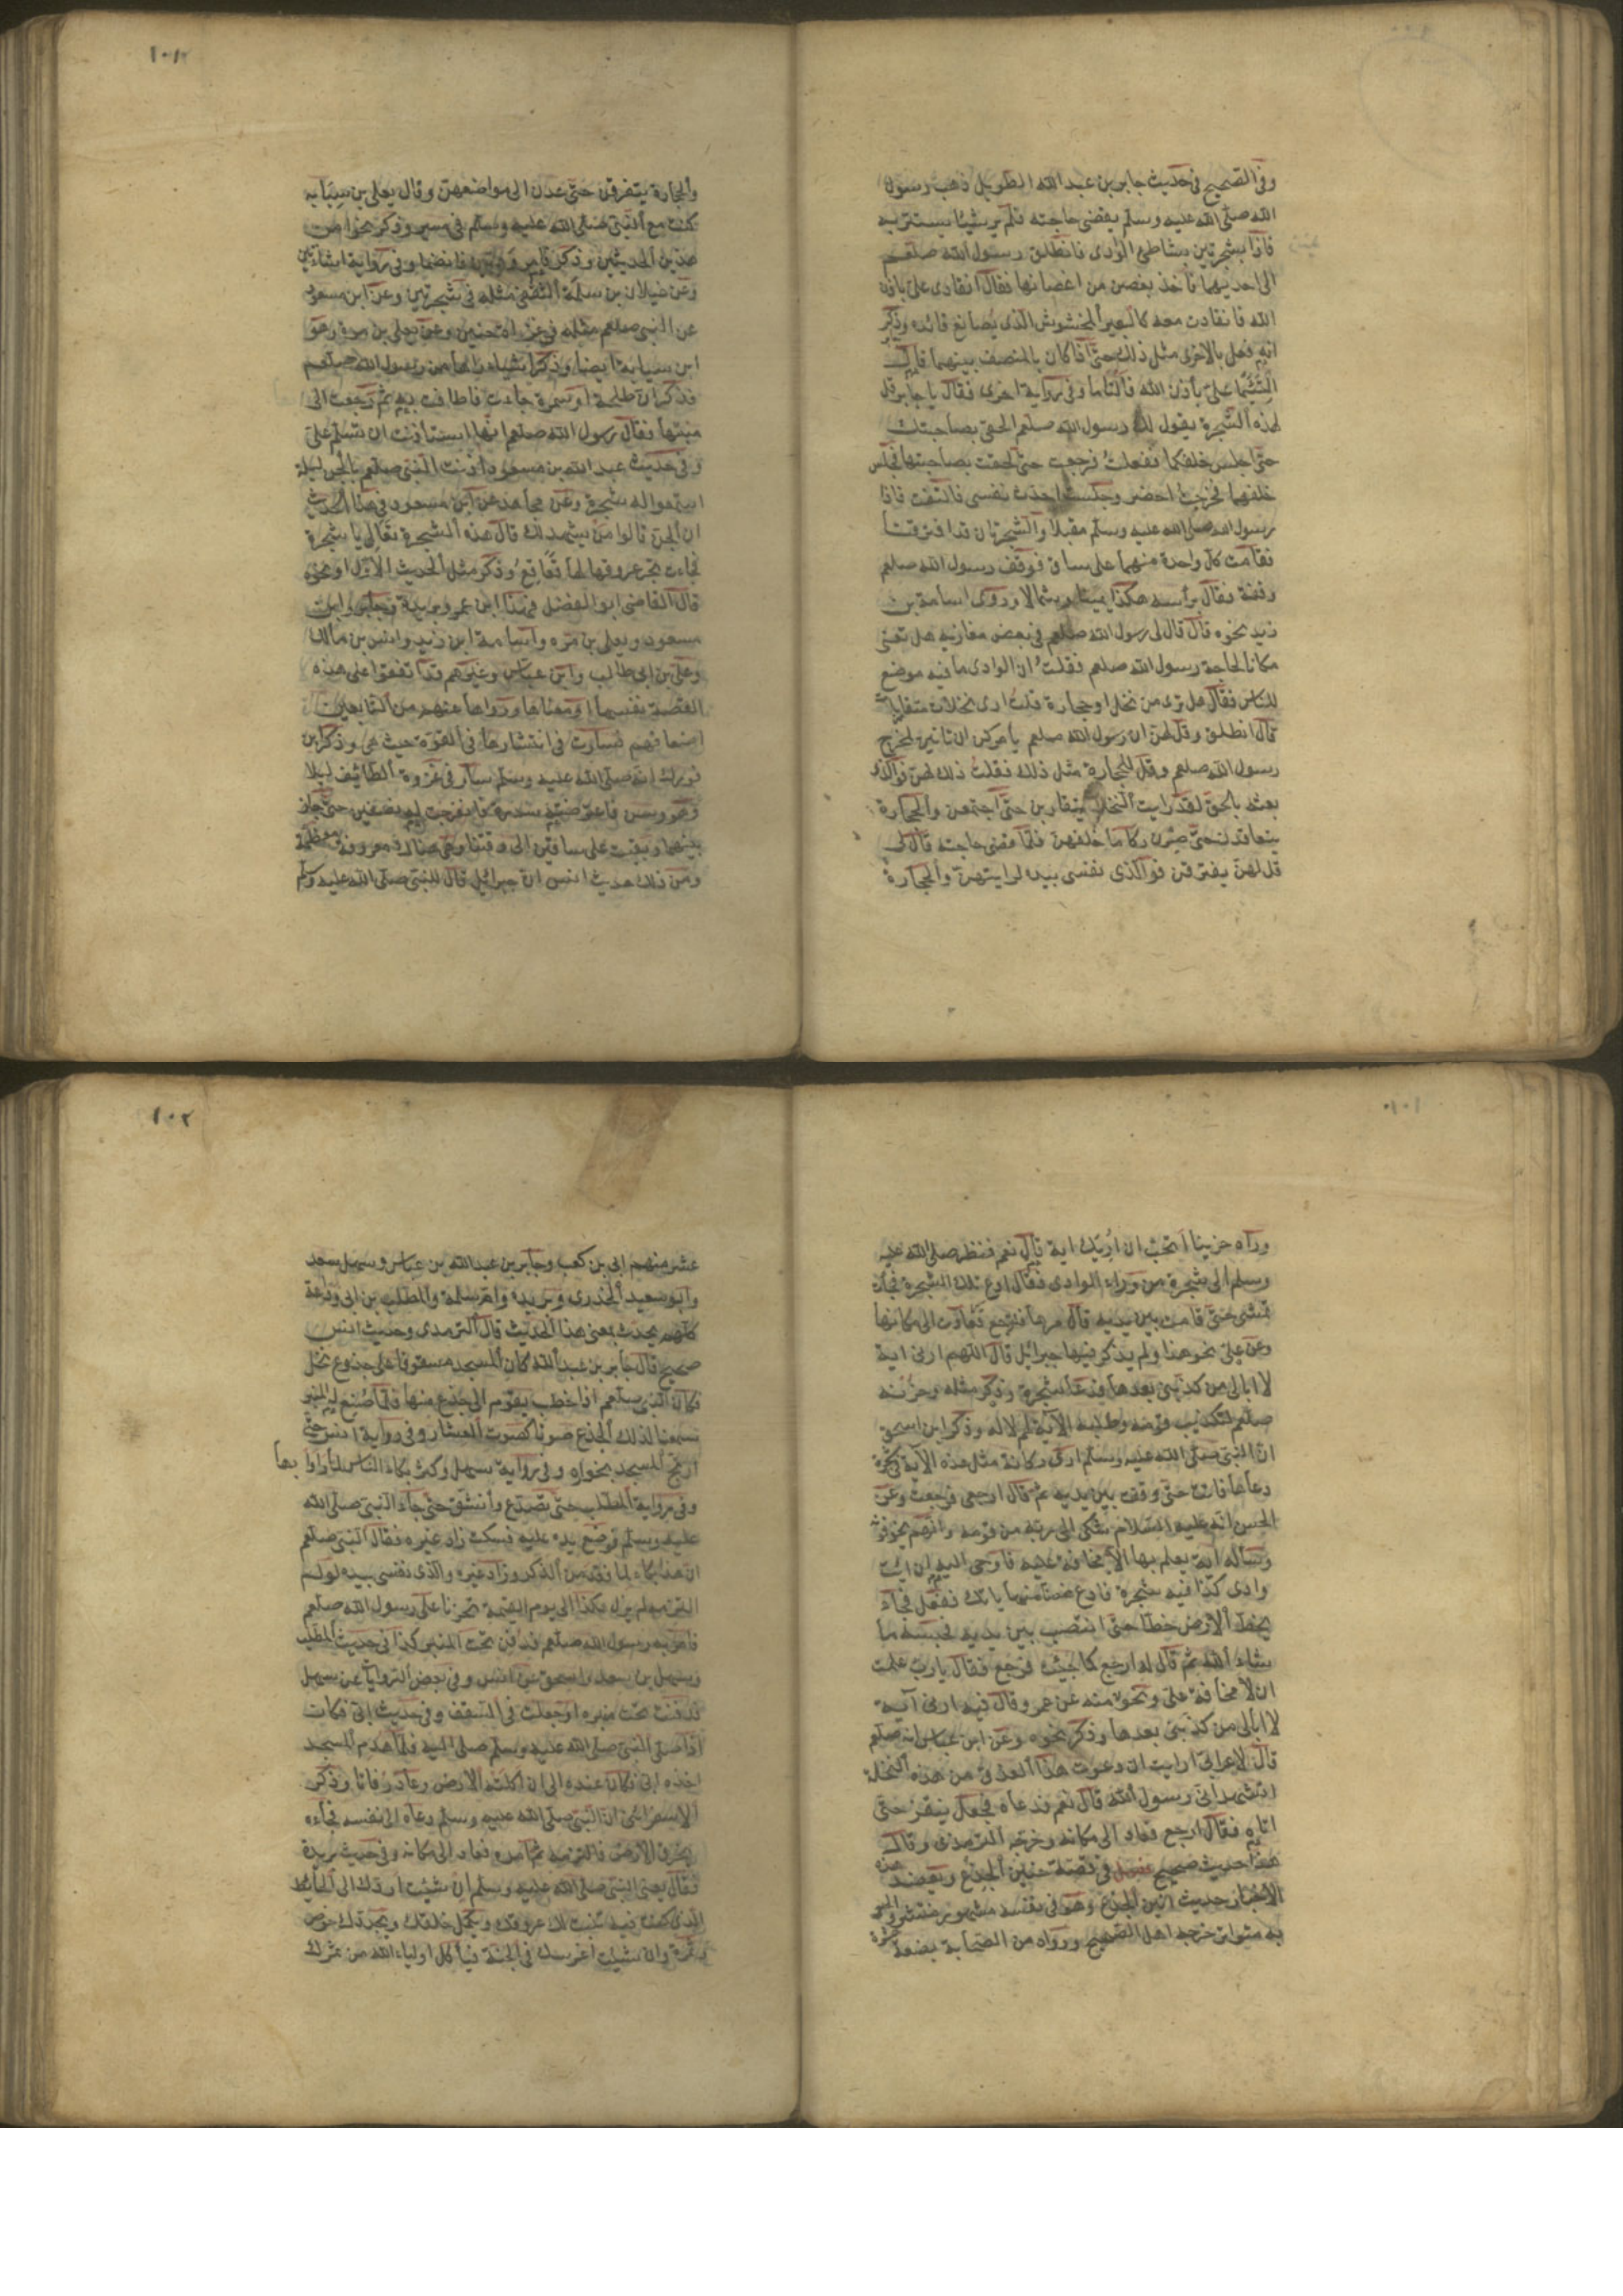 وفى الصحيح فى حديث جابر بن عبد الله الطويل ذهب رسول
الله صلى الله عليه وسلم يقضى حاجته فلم ير شيئا يستتر به
فاذا بشجرتين بشاطئ الوادى فانطلق رسول الله صلعم
الى احديهما فاخذ بغصن من اغصانها فقال انقادى على باذن
الله فانقادت معه كالبعير المخشوش الذى يصانع قائده وذكر
انه فعل بالاخرى مثل ذلك حتى اذا كان بالمنصف بينهما قال
التئما على باذن الله فالتأما وفى رواية اخرى فقال يا جابر قل
لهذه الشجرة يقول لك رسول الله صلعم الحقى بصاحبتك
حتى اجلس خلفكما ففعلت فرجعت حتى لحقت بصاحبتها فجلس
خلفهما فخرجت احضر وجلست احدث نفسى فالتفت فاذا
رسول الله صلى الله عليه وسلم مقبلا والشجرتان قد افترقتا
فقامت كل واحدة منهما على ساق فوقف رسول الله صلعم
وقفة فقال برأسه هكذا يمينا وشمالا وروى اسامة بن
زيد نحوه قال قال لى رسول الله صلعم فى بعض مغازيه هل تعنى
مكانا لحاجة رسول الله صلعم فقلت ان الوادى ما فيه موضع
للناس فقال هل ترى من نخل او حجارة قلت ارى نخلات متقاربات
قال انطلق وقل لهن ان رسول الله صلعم يأمركن ان تأتين لمخرج
رسول الله صلعم وقل للحجارة مثل ذلك فقلت ذلك لهن فوالذى
بعثه بالحق لقد رايت النخلات يتقاربن حتى اجتمعن والحجارة
يتعاقدن حتى صرن ركاما خلفهن فلما قضى حاجته قال لى
قل لهن يفترقن فوالذى نفسى بيده لرايتهن والحجارة
١٠١
والحجارة يتفرقن حتى عدن الى مواضعهن وقال يعلى بن سيابه
كنت مع النبى صلى الله عليه وسلم فى مسير وذكر نحوا من
هذين الحديثين وذكر فامر وديتين فانضما وفى رواية اشاءتين
وعن غيلان بن سلمة الثقفى مثله فى شجرتين وعن ابن مسعود
عن النبى صلعم مثله فى غزاة حنين وعن يعلى بن مرة وهو
ابن سيابة ايضا وذكر اشياء رآها من رسول الله صلعم
فذكر ان طلحة او سمرة جاءت فاطافت به ثم رجعت الى
منبتها فقال رسول الله صلعم انها استأذنت ان تسلم على
وفى حديث عبد الله بن مسعود آذنت النبى صلعم بالجن ليلة
استمعوا له شجرة وعن مجاهد عن ابن مسعود فى هذا الحديث
ان الجن قالوا من يشهد لك قال هذه الشجرة تعالى يا شجرة
فجاءت تجر عروقها لها قعاقع وذكر مثل الحديث الاول او نحوه
قال القاضى ابو الفضل فهذا ابن عمر وبريدة وجابر وابن
مسعود ويعلى بن مره واسامة ابن زيد وانس بن مالك
وعلى بن ابى طالب وابن عباس وغيرهم قد اتفقوا على هذه
القصة نفسها او معناها ورواها عنهم من التابعين
اضعافهم فصارت فى انتشارها فى القوة حيث هى وذكر ابن
فورك انه صلى الله عليه وسلم سار فى غزوة الطائف ليلا
وهو وسن فاعترضته سدرة فانفرجت له نصفين حتى جاز
بينهما وبقيت على ساقين الى وقتنا وهى هناك معروفة معظمة
ومن ذلك حديث انس ان جبرائيل قال للنبى صلى الله عليه وسلم
١٠١
ورآه حزينا اتحب ان اريك اية قال نعم فنظر صلى الله عليه
وسلم الى شجرة من وراء الوادى فقال ادع تلك الشجرة فجأت
تمشى حتى قامت بين يديه قال مرها فترجع فعادت الى مكانها
وعن على نحو هذا ولم يذكر فيها جبرائل قال اللهم ارنى اية
لا ابالى من كذبنى بعدها فدعا شجرة وذكر مثله وحزنه
صلعم لتكذيب قومه وطلبه الآية لهم لا له وذكر ابن اسحق
ان النبى صلى الله عليه وسلم ارى ركانة مثل هذه الآية فى شجرة
دعاها فاتت حتى وقفت بين يديه ثم قال ارجعى فرجعت وعن
الحسن انه عليه السلام شكى الى ربه من قومه وانهم يخوفونه
وسأله آية يعلم بها الا مخافة عليه فاوحى اليه ان ائت
وادى كذا فيه شجرة فادع غصنا منها يأتك ففعل فجاء
يخط الارض خطا حتى انتصب بين يديه فحبسه ما
شاء الله ثم قال له ارجع كما جئت فرجع فقال يا رب علمت
ان لا مخافة على ونحو منه عن عمر وقال فيه ارنى آية
لا ابالى من كذبنى بعدها وذكر نحوه وعن ابن عباس انه صلعم
قال لاعرابى ارايت ان دعوت هذا العذق من هذه النخلة
اتشهد انى رسول الله قال نعم فدعاه فجعل ينقز حتى
اتاه فقال ارجع فعاد الى مكانه وخرجه الترمذى وقال
هذا حديث صحيح فصل فى قصة حنين الجذع ويعضد هذه
الاخبار حديث انين الجذع وهو فى نفسه مشهور منتشر والخبر
به متواتر خرجه اهل الصحيح ورواه من الصحابة بضعة عشرة
١٠٢
عشر منهم ابى بن كعب وجابر بن عبد الله بن عباس وسهل سعد
وابو سعيد الخدرى وبريدة وام سلمة والمطلب بن ابى وداعة
كلهم يحدث بمعنى هذا الحديث قال الترمذى وحديث انس
صحيح قال جابر بن عبد الله كان المسجد مسقوفا على جذوع نخل
فكان النبى صلعم اذا خطب يقوم الى جذع منها فلما صنع له المنبر
سمعنا لذلك الجذع صوتا كصوت العشار وفى رواية انس حتى
ارتج المسجد بخواره وفى رواية سهل وكثر بكاء الناس لما راوا بها
وفى رواية المطلب حتى تصدع وانشق حتى جاء النبى صلى الله
عليه وسلم فوضع يده عليه فسكت زاد غيره فقال النبى صلعم
ان هذا بكاء لما فقد من الذكر وزاد غيره والذى نفسى بيده لو لم
التزمه لم يزل هكذا الى يوم القيمة تحزنا على رسول الله صلعم
فامر به رسول الله صلعم فدفن تحت المنبر كذا فى حديث المطلب
وسهل بن سعد واسحق عن انس وفى بعض الروايات عن سهل
فدفنت تحت منبره او جعلت فى السقف وفى حديث ابى فكان
اذا صلى النبى صلى الله عليه وسلم صلى اليه فلما هدم المسجد
اخذه ابى فكان عنده الى ان اكلته الارض وعاد رفاتا وذكر
الاسفرائنى ان النبى صلى الله عليه وسلم دعاه الى نفسه فجاءه
يخرق الارض فالتزمه ثم امره فعاد الى مكانه وفى حديث بريدة
فقال يعنى النبى صلى الله عليه وسلم ان شئت اردك الى الحائط
الذى كنت فيه تنبت لك عروقك ويكمل خلقك ويجدد لك خوص
وثمرة وان شئت اغرسك فى الجنة فيأكل اولياء الله من ثمرك